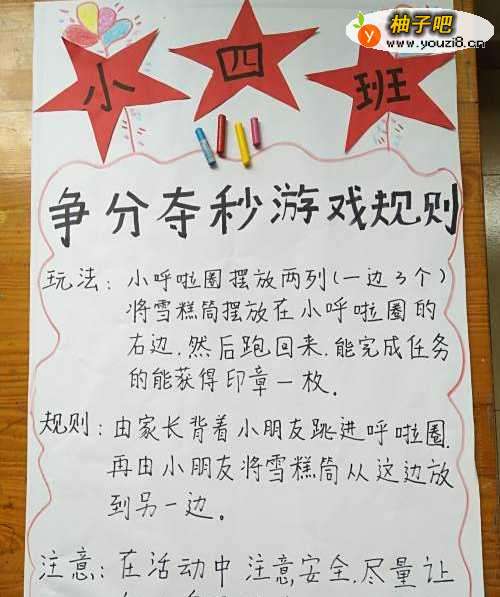 柚子吧
www.youzi8.cn
小四班
争分夺秒游戏规则
玩法：小呼啦圈摆放两列(一边3个)
将雪糕筒摆放在小呼啦圈的
右边.然后跑回来.能完成任务
的能获得印章一枚.
规则：由家长背着小朋友跳进呼啦圈.
再由小朋友将雪糕筒从这边放
到另一边。
注意：在活动中注意安全.尽量让